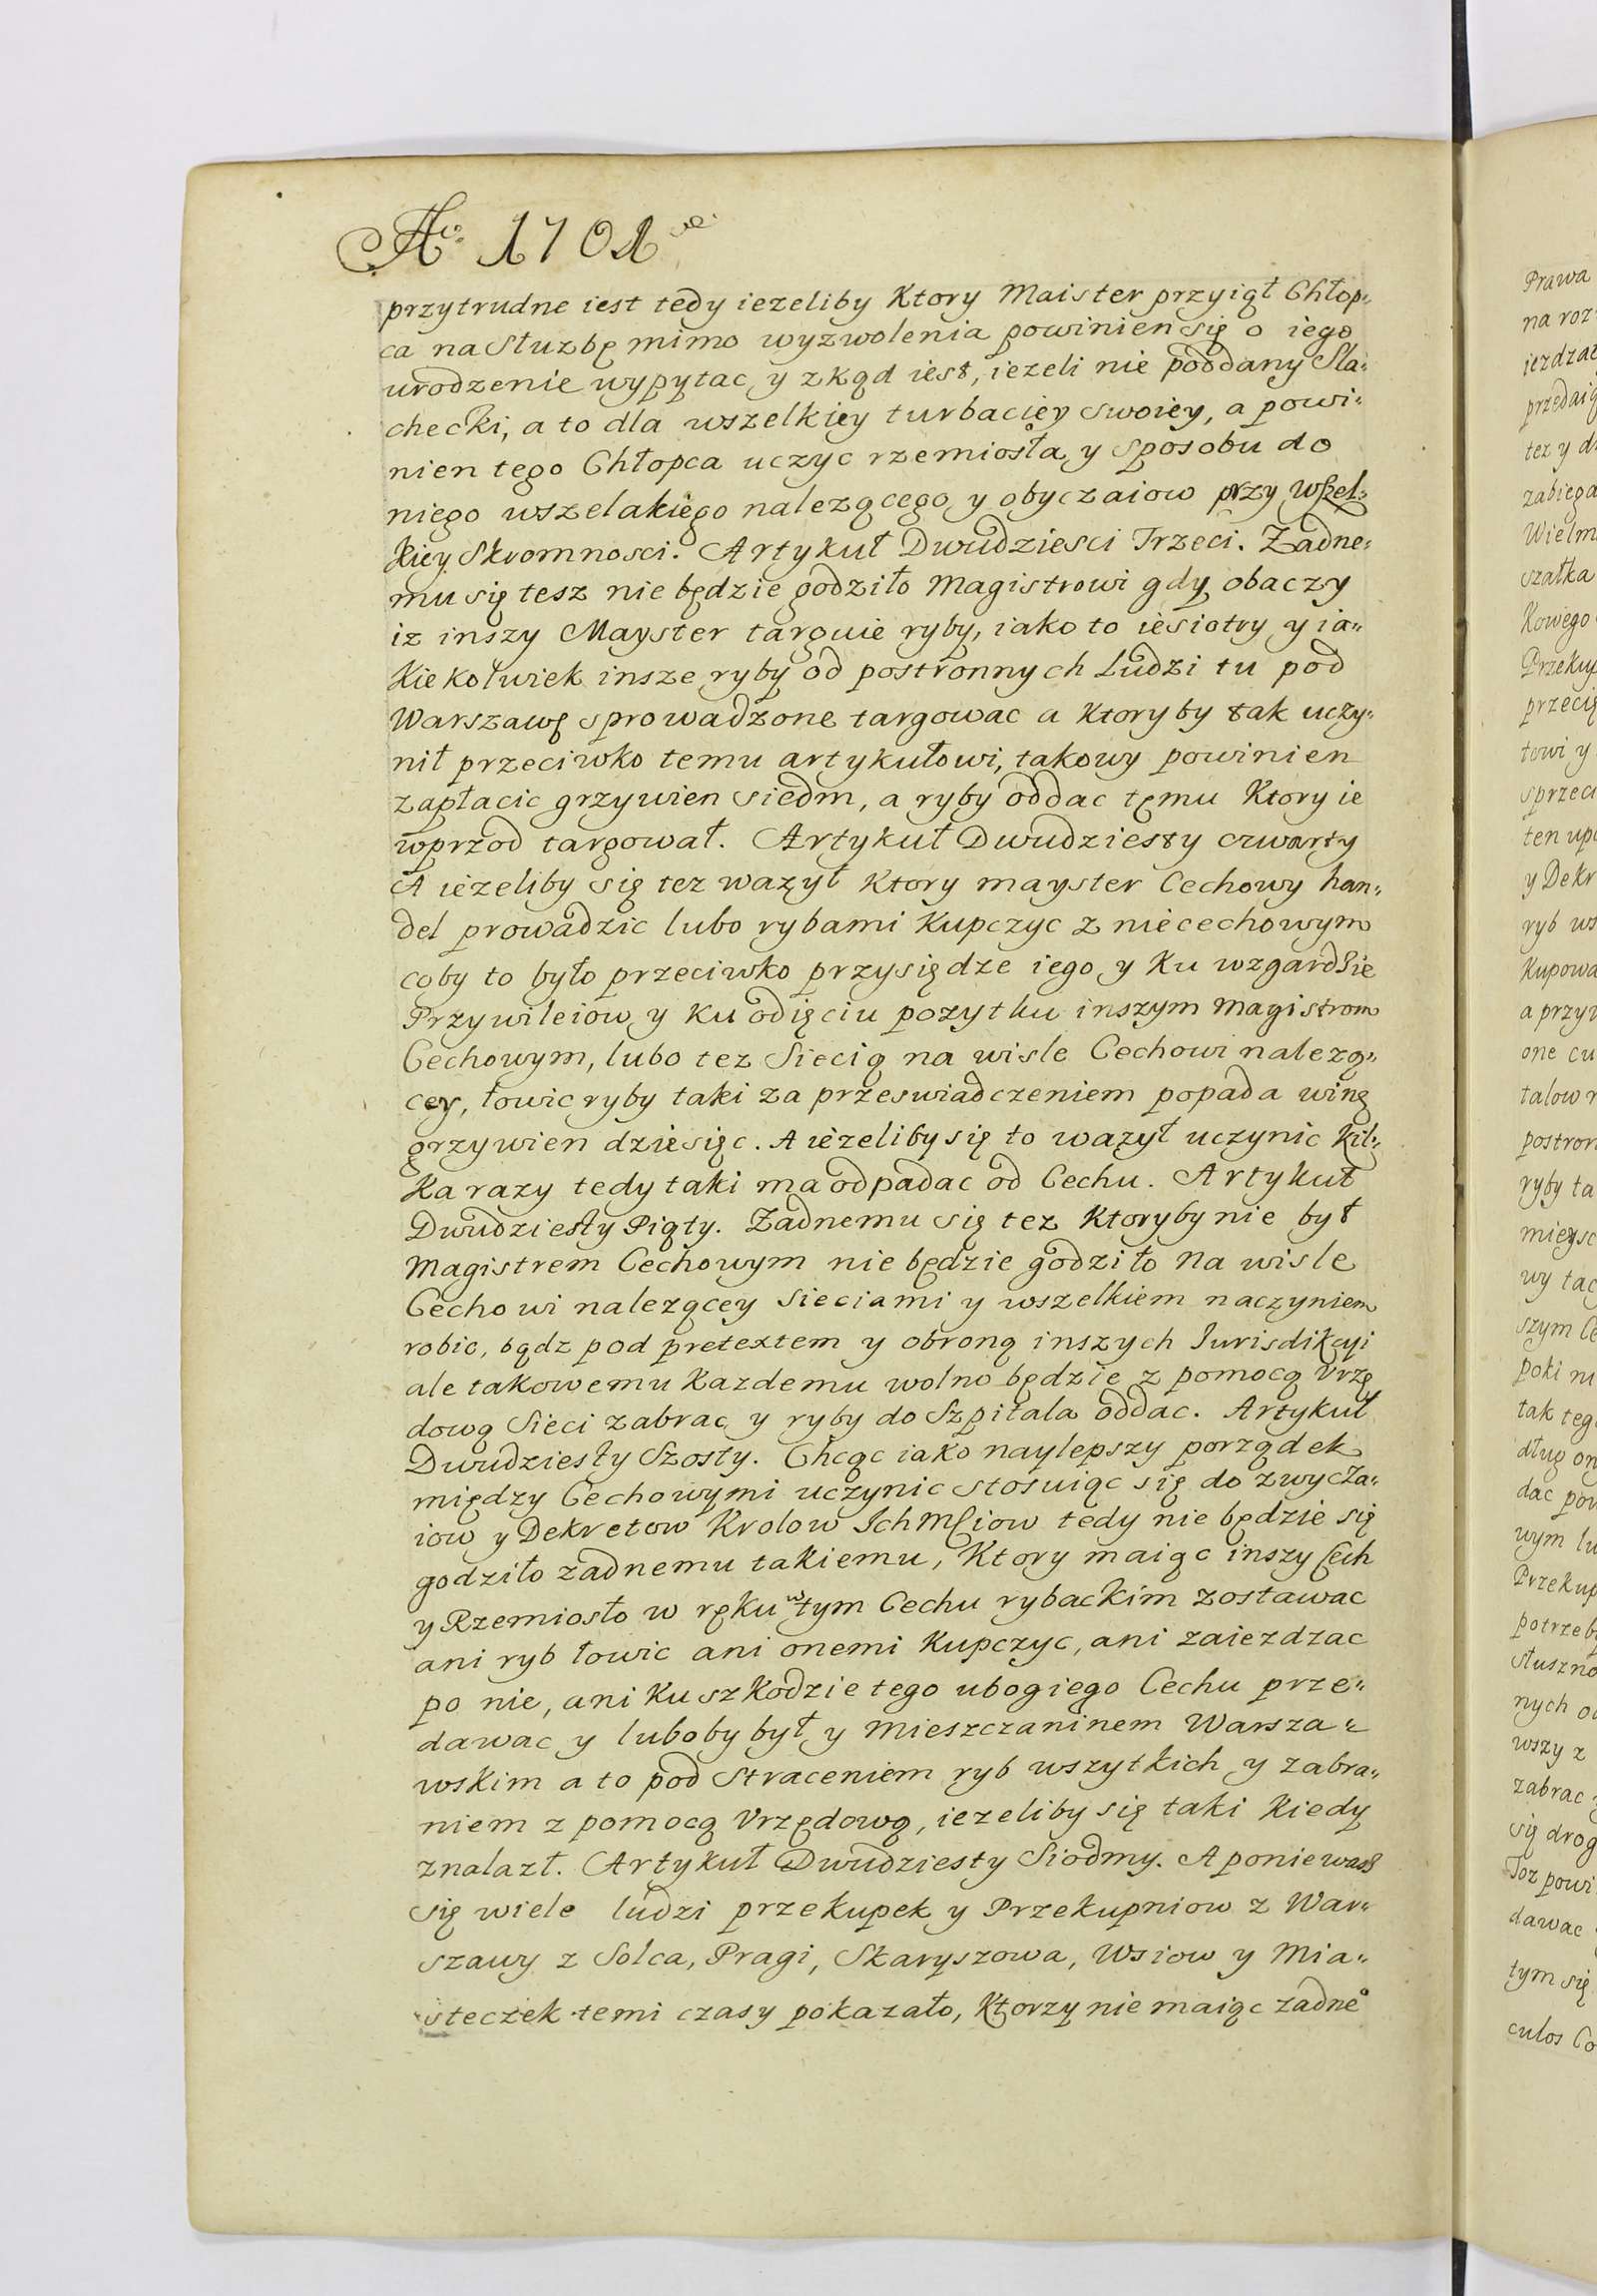 Ao 1701
przytrudne iest tedy iezeliby Ktory Maister przyiął Chłop„
ca na Słuzbę mimo wyzwolenia powinien się o iego
urodzenie wypytac y zkąd iest, iezeli nie poddany Sla„
checki, a to dla wszelkiey turbaciey swoiey, a powi„
nien tego Chłopca uczyc rzemiosła y sposobu do
niego wszelakiego nalezącego y obyczaiow przy wszel„
kiey Skromnosci. Artykuł Dwudziesci Trzeci. Zadne„
mu się tesz nie będzie godziło Magistrowi gdy obaczy
iz inszy Mayster targuie ryby, iako to iesiotry y ia„
kie kolwiek insze ryby od postronnych Ludzi tu pod
Warszawę sprowadzone targowac a Ktoryby tak uczy„
nił przeciwko temu artykułowi, takowy powinien
zapłacic grzywien siedm, a ryby oddac temu Ktory ie
wprzod targował. Artykuł Dwudziesty czwarty
A iezeliby się tez wazył Ktory mayster Cechowy han„
del prowadzic lubo rybami Kupczyc z niecechowym
coby to było przeciwko przysiędze iego y Ku wzgardzie
Przywileiow y Ku odięciu pozytku inszym Magistrom
Cechowym, lubo tez Siecią na wisle Cechowi nalezą„
cey, łowic ryby taki za przeswiadczeniem popada winę
grzywien dziesięc. A iezeliby się to wazył uczynic Kil„
Ka razy tedy taki ma odpadac od Cechu. Artykuł
Dwudziesty Piąty. Zadnemu się tez Ktoryby nie był
Magistrem Cechowym nie będzie godziło na wisle
Cechowi nalezącey Sieciami y wszelkiem naczyniem
robic, bądz pod pretextem y obroną inszych Iurisdikcyi
ale takowemu Kazdemu wolno będzie z pomocą Vrzę
dową Sieci zabrac y ryby do Szpitala oddac. Artykuł
Dwudziesty Szosty. Chcąc iako naylepszy porządek
między Cechowymi uczynic stosuiąc się do zwycza„
iow y Dekretow Krolow Ichmsciow tedy nie będzie się
godziło zadnemu takiemu, Ktory maiąc inszy Cech
y Rzemiosło w ręku w tym Cechu rybackim zostawac
ani ryb łowic ani onemi Kupczyc, ani zaiezdzac
po nie, ani Ku szkodzie tego ubogiego Cechu prze„
dawac y luboby był y Mieszczaninem Warsza„
wskim a to pod Straceniem ryb wszytkich y zabra„
niem z pomocą Vrzędową, iezeliby się taki Kiedy
znalazł. Artykuł Dwudziesty Siodmy. A poniewasz
się wiele ludzi przekupek y Przekupniow z War„
szawy z Solca, Pragi, Skaryszowa, Wsiow y Mia„
steczek temi czasy pokazało, Ktorzy nie maiąc zadne°
Prawa
na roz
iezdzac
przedaią
tez y d
zabiega
Wielm
szałka
Kowego
Przekup
przecię
towi y
sprzeci
ten up
y Dekr
ryb ws
Kupowa
a przy
one cu
talow
postron
ryby ta
mieysc
wy tac
szym Ce
poki ni
tak teg
dług on
dac pow
wym lu
Przekup
potrzeb
słuszno
nych o
wszy z
zabrac
się drog
Toz powi
dawac
tym się
culos Co